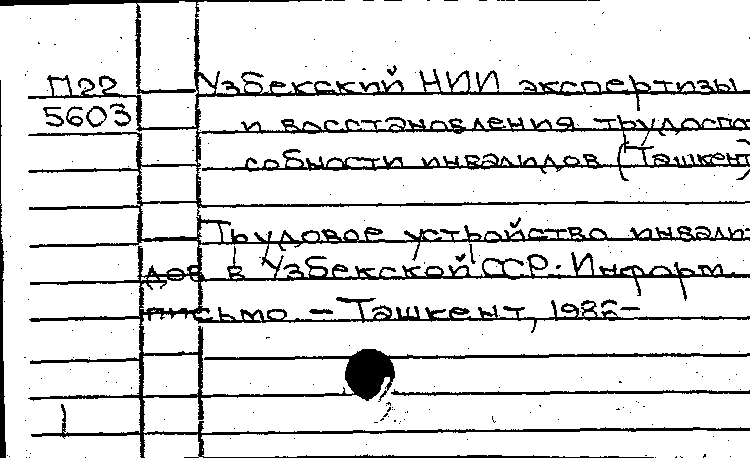 П22 Узбекский НИИ экспертизы
5603 и восстановления трудоспо
собности инвалидов (Ташкент
Трудовое устройство инвали
дов в Узбекской ССР: Информ.
письмо. – Ташкент, 1986–
1